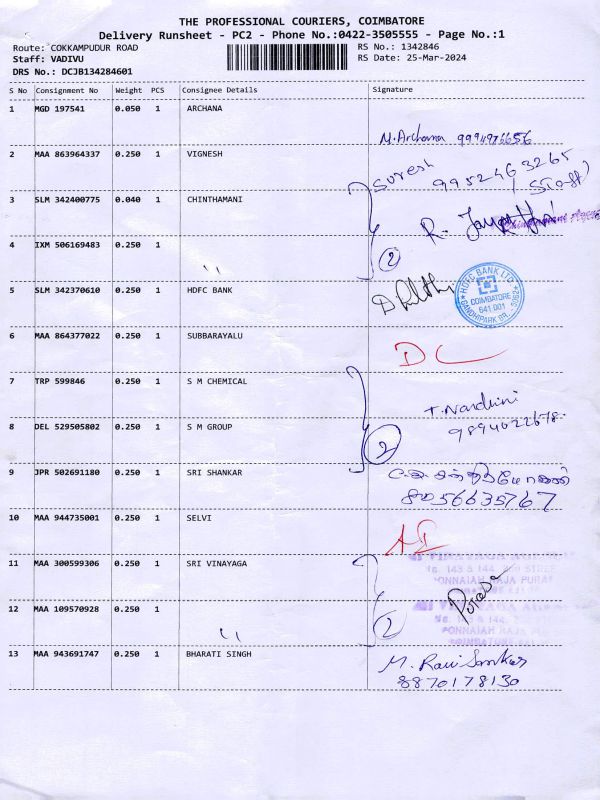 THE PROFESSIONAL COURIERS, COIMBATORE
Delivery Runsheet - PC2 - Phone No.:0422-3505555 - Page No.:1
Route: COKKAMPUDUR ROAD
RS No.: 1342846
Staff: VADIVU
RS Date: 25-Mar-2024
DRS No.: DCJB134284601
S No Consignment No Weight PCS Consignee Details Signature
1 MGD 197541 0.050 1 ARCHANA
M. Archana 9994976656
2 MAA 863964337 0.250 1 VIGNESH
Suresh 9952463265
(Staff)
3 SLM 342400775 0.040 1 CHINTHAMANI
R.
4 IXM 506169483 0.250 1
〃 2
5 SLM 342370610 0.250 1 HDFC BANK
HDFC BANK LTD.
COIMBATORE
641 001
GANDHIPARK BR.
6 MAA 864377022 0.250 1 SUBBARAYALU
DC
7 TRP 599846 0.250 1 S M CHEMICAL
T. Nandhini
9894022678
8 DEL 529505802 0.250 1 S M GROUP
2
9 JPR 502691180 0.250 1 SRI SHANKAR
8056635767
10 MAA 944735001 0.250 1 SELVI
11 MAA 300599306 0.250 1 SRI VINAYAGA
143 & 144,
PONNAIAH RAJA PURAM
12 MAA 109570928 0.250 1
〃 2
PONNAIAH RAJA PURAM
13 MAA 943691747 0.250 1 BHARATI SINGH
M. Ravi Sankar
8870178130